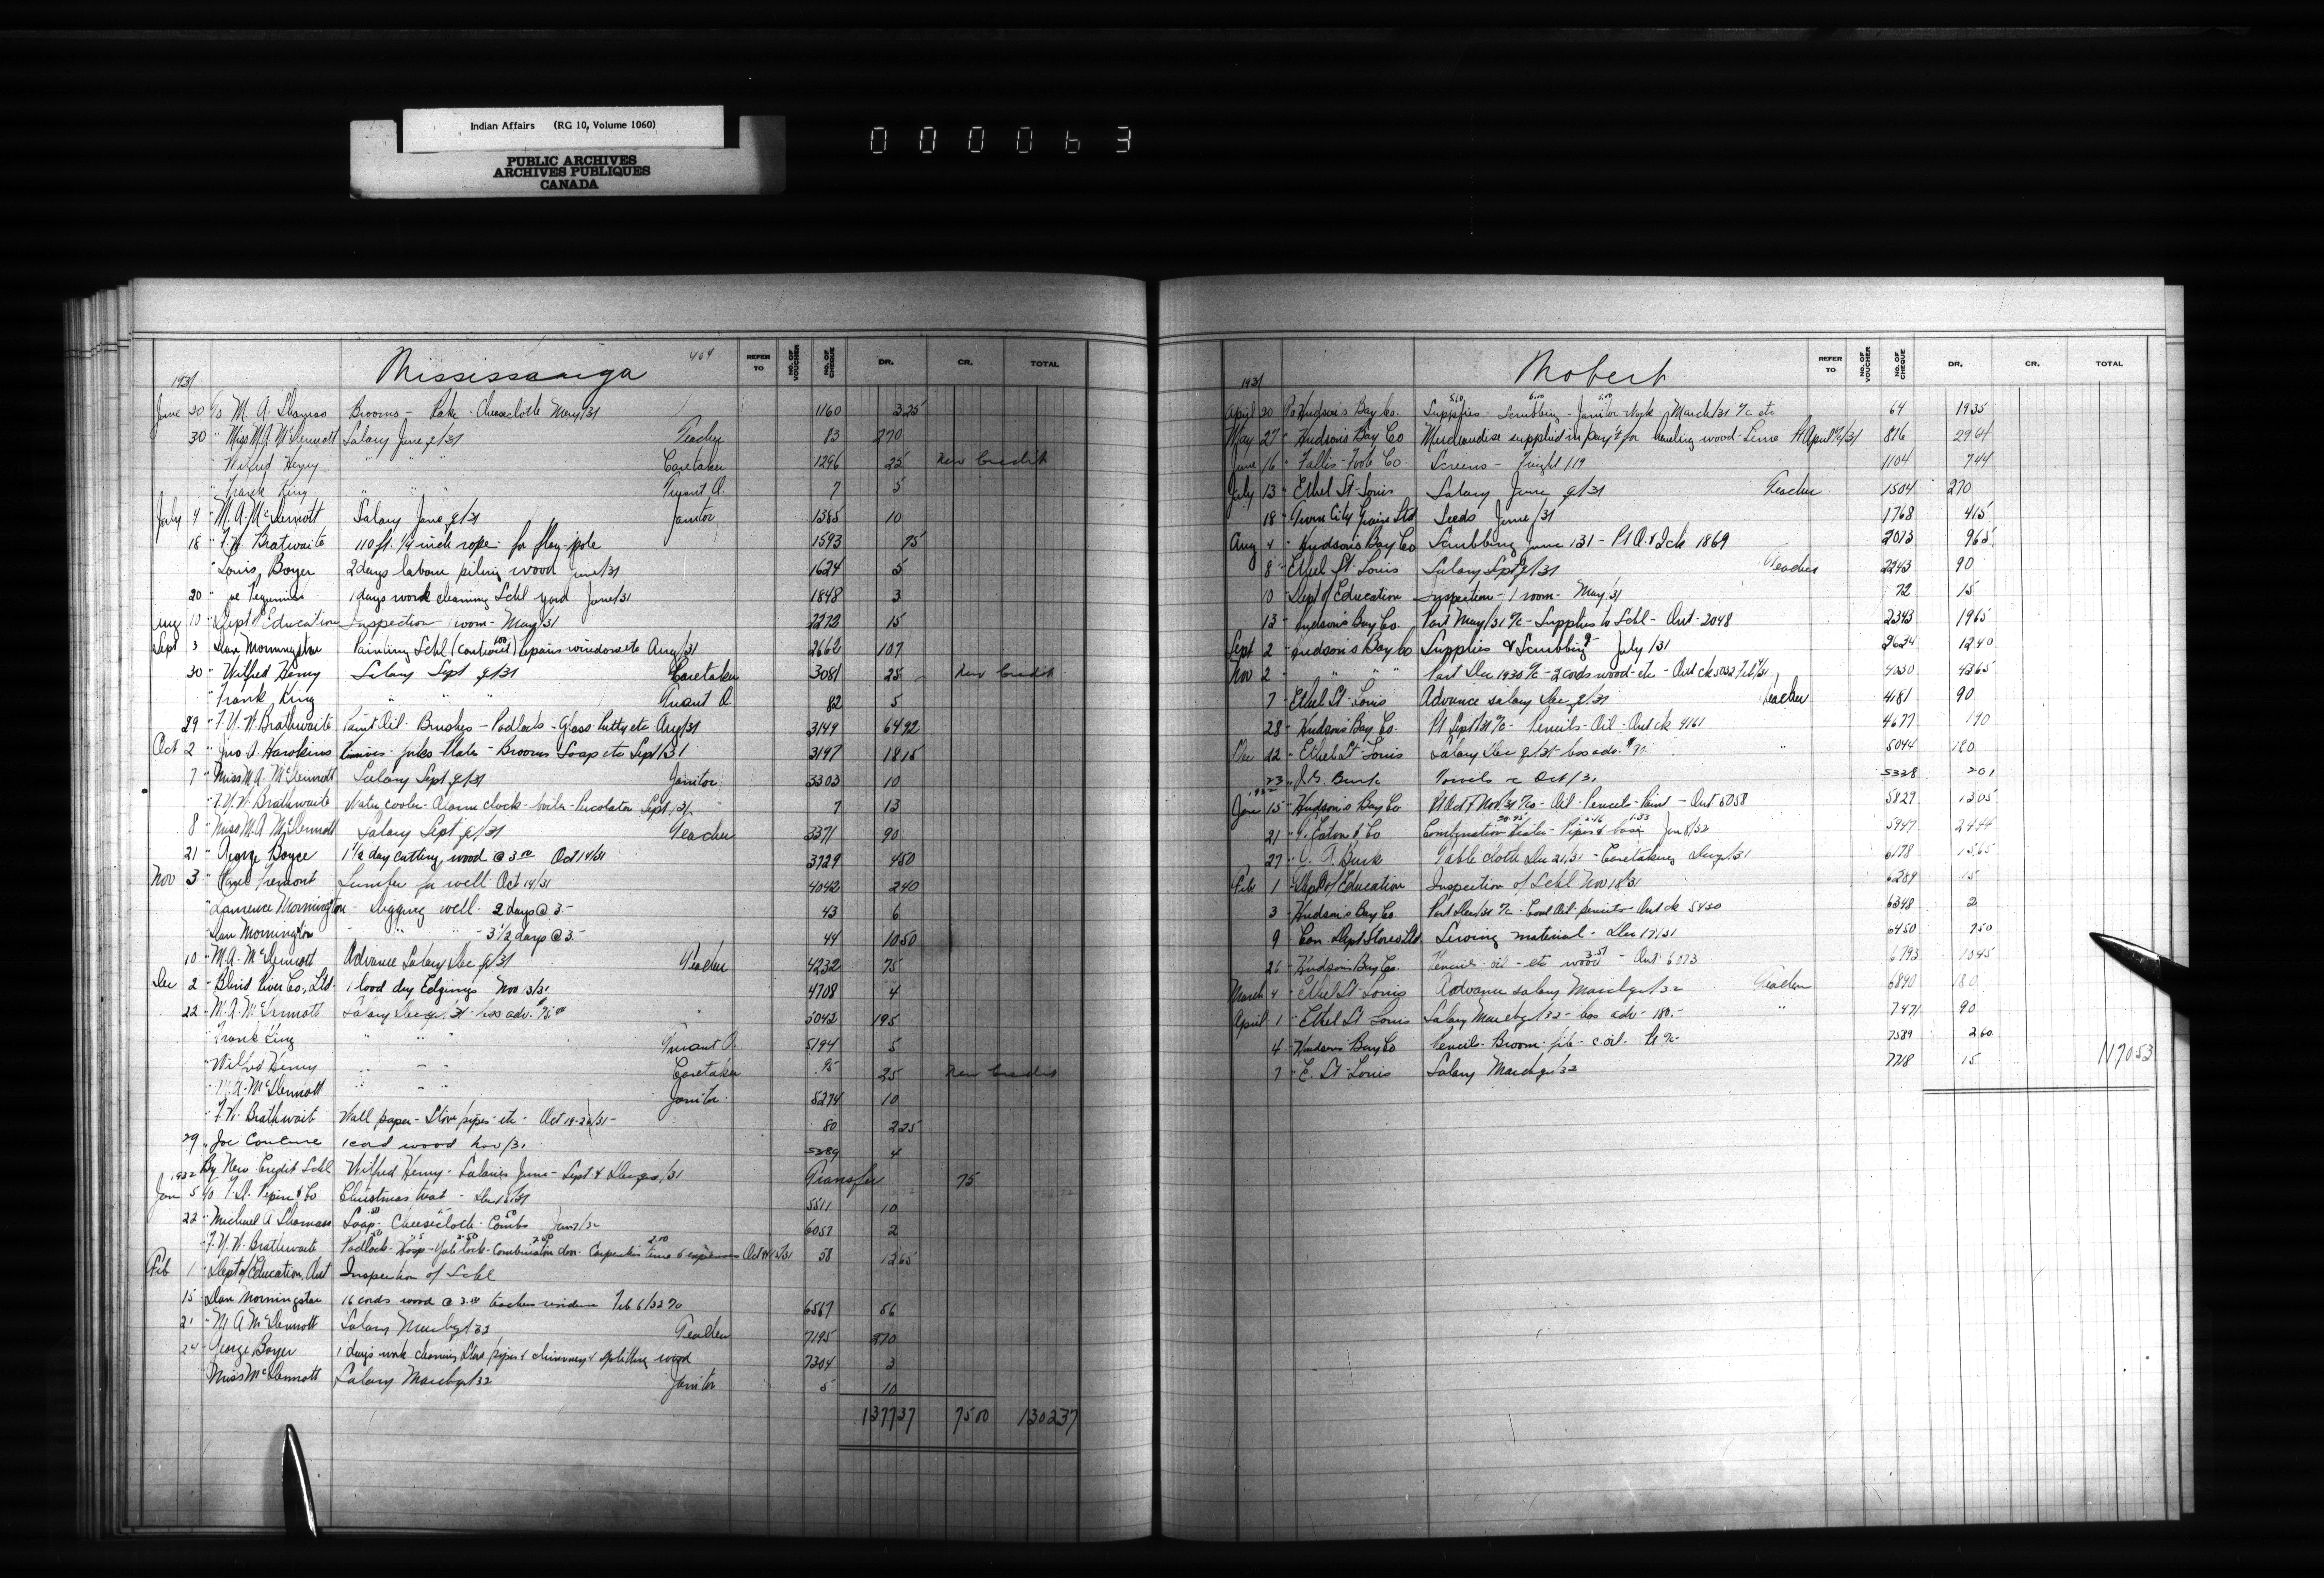 Indian Affairs (RG 10, Volume 1060)
PUBLIC ARCHIVES
ARCHIVES PUBLIQUES
CANADA
000063
Mississauga 404
REFER TO NO. OF VOUCHER NO. OF CHEQUE DR. CR. TOTAL
1931
June 20 To M. A. Thomas Brooms - Rake - Cheesecloth May/31 1160 3 25
30 " Miss M.A. McDermott Salary June q/31 Teacher 83 270
" Wilfred Henry " " " Caretaker 1296 25 New Credit
" Frank King " " " Truant O. 7 5
July 4 " M. A. McDermott Salary June q/31 Janitor 1385 10
18 " Brathwaite 110 ft. 1/4 inch rope - for flag-pole 1593 75
" Louis Boyer 2 days labour piling wood June/31 1624 5
20 " Joe 1 days work cleaning Schl yard June/31 1848 3
Aug 10 " Dept of Education Inspection - 1 room - May/31 2273 15
Sept 3 " Dan Morningstar Painting Schl (contract) repairs windows etc Aug/31 2662 107
30 " Wilfred Henry Salary Sept q/31 Caretaker 3081 25 New Credit
" Frank King " " " Truant O. 82 5
29 " Brathwaite Paint Oil - Brushes - Padlocks - Glass Putty etc Aug/31 3149 64 92
Oct 2 " Jno. D. Hawkins - Brooms - Soap etc Sept/31 3197 18 15
7 " Miss M.A. McDermott Salary Sept q/31 Janitor 3303 10
" Brathwaite Water cooler - Alarm clock - boiler - Percolator Sept/31 7 13
8 " Miss M.A. McDermott Salary Sept q/31 Teacher 3371 90
21 " George Boyce 1 1/2 day cutting wood @ 3.00 Oct 14/31 3729 4 50
Nov 3 " Lumber for well Oct 14/31 4042 2 40
" Lawrence Morningstar - Digging well - 2 days @ 3.- 43 6
" Dan Morningstar - " " - 3 1/2 days @ 3.- 44 10 50
10 " M. A. McDermott Advance Salary Dec q/31 Teacher 4232 75
Dec 2 " Blind River Co., Ltd. 1 load dry Edgings Nov 13/31 4708 4
22 " M. A. McDermott Salary Dec q/31 - less adv. $75.00 " 5042 195
" Frank King " " Truant O. 5194 5
" Wilfred Henry " " " Caretaker 95 25 New Credit
" M. A. McDermott " " " Janitor 5274 10
" Brathwaite Wall paper - Stove pipes - etc - Oct 80 2 25
29 " Joe Couture 1 cord wood Nov/31 5289 4
By New Credit Schl Wilfred Henry - Salaries June - Sept & Dec qrs/31 Transfer 75
1932
Jan 5 To Pepin & Co Christmas treat - Dec 5511 10
22 " Michael A Thomas Soap - Cheesecloth - Combs Jan 6057 2
" Brathwaite Padlock - Hasp - Yale lock - Combination door - Carpenters time & expenses 58 12 65
Feb 1 " Dept of Education, Ont Inspection of Schl
15 " Dan Morningstar 16 cords wood @ 3.50 teachers residence Feb 6/32 6567 56
21 " M A McDermott Salary March q/32 Teacher 7195 270
24 " George Boyer 1 days work cleaning stove pipes & chimneys & splitting wood 7304 3
" Miss McDermott Salary March q/32 Janitor 5 10
1377 37 75 00 1302 37
Mobert
REFER TO NO. OF VOUCHER NO. OF CHEQUE DR. CR. TOTAL
1931
April 20 To Hudson's Bay Co. Supplies - Scrubbing - Janitor work - March/31 a/c etc 64 19 35
May 27 " Hudson's Bay Co Merchandise supplied in pay't for hauling wood - Lime Pt April a/c/31 816 29 64
June 16 " Fallis-Foote Co. Screens - Freight 1.19 1104 7 44
July 13 " Ethel St-Louis Salary June q/31 Teacher 1504 270
18 " Twin City Grain Ltd Seeds June/31 1768 4 15
Aug 4 " Hudson's Bay Co Scrubbing June/31 - Pt A. & Ick 1869 2073 9 65
8 " Ethel St. Louis Salary Sept q/31 Teacher 2243 90
10 " Dept of Education Inspection - 1 room - May/31 72 15
13 " Hudson's Bay Co. Part May/31 a/c - Supplies to Schl - Ont - 2048 2343 19 65
Sept 2 " Hudson's Bay Co Supplies & Scrubbing July/31 2624 12 40
Nov 2 " " " Part Dec 1930 a/c - 2 cords wood - etc 4330 43 65
7 " Ethel St-Louis Advance salary Dec q/31 Teacher 4181 90
28 " Hudson's Bay Co. Pt Sept/31 a/c - Pencils - Oil - Ont ck 4161 4677 1 90
Dec 12 " Ethel St-Louis Salary Dec q/31 less adv. $90. " 5044 180
23 " J. G. Burk Towels a/c Oct/31 5328 2 01
1932
Jan 15 " Hudson's Bay Co Pt Oct & Nov/31 a/cs - Oil - Pencils - Paint - Ont 5058 5829 13 05
21 " T. Eaton & Co Combination Heater - Pipes & base Jan 8/32 5947 24 44
27 " Burk Table cloth Dec 21/31 - Caretaking Dec q/31 6178 13 65
Feb 1 " Dept of Education Inspection of Schl Nov 18/31 6289 15
3 " Hudson's Bay Co. Part Dec/31 a/c - Coal Oil - pencils - Ont ck 5430 6348 2
9 " Can. Dept Stores Ltd. Sewing material - Dec 17/31 6450 7 50
26 " Hudson's Bay Co. Pencils - oil - etc wood 3.57 - Ont 6073 6793 10 45
March 4 " Ethel St-Louis Advance salary March q/32 Teacher 6840 180
April 1 " Ethel St Louis Salary March q/32 - less adv - 180.- " 7471 90
4 " Hudson's Bay Co Pencils - Broom - c. oil - Pt a/c 7589 2 60
7 " E. St-Louis Salary March q/32 7718 15 1170 53